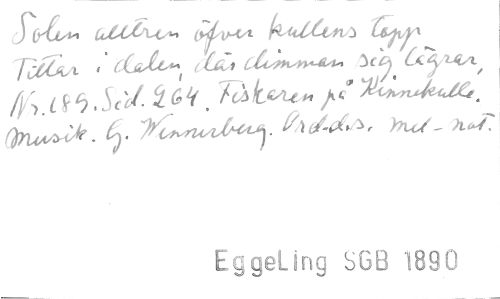 Solen allt'ren öfver kullens topp
Tittar i dalen, där dimman sig lägrar,
Nr. 189. Sid. 264. Fiskaren på Kinnekulle.
Musik. G. Wennerberg. Ord-d:s. mel-not.
EggeLing SGB 1890